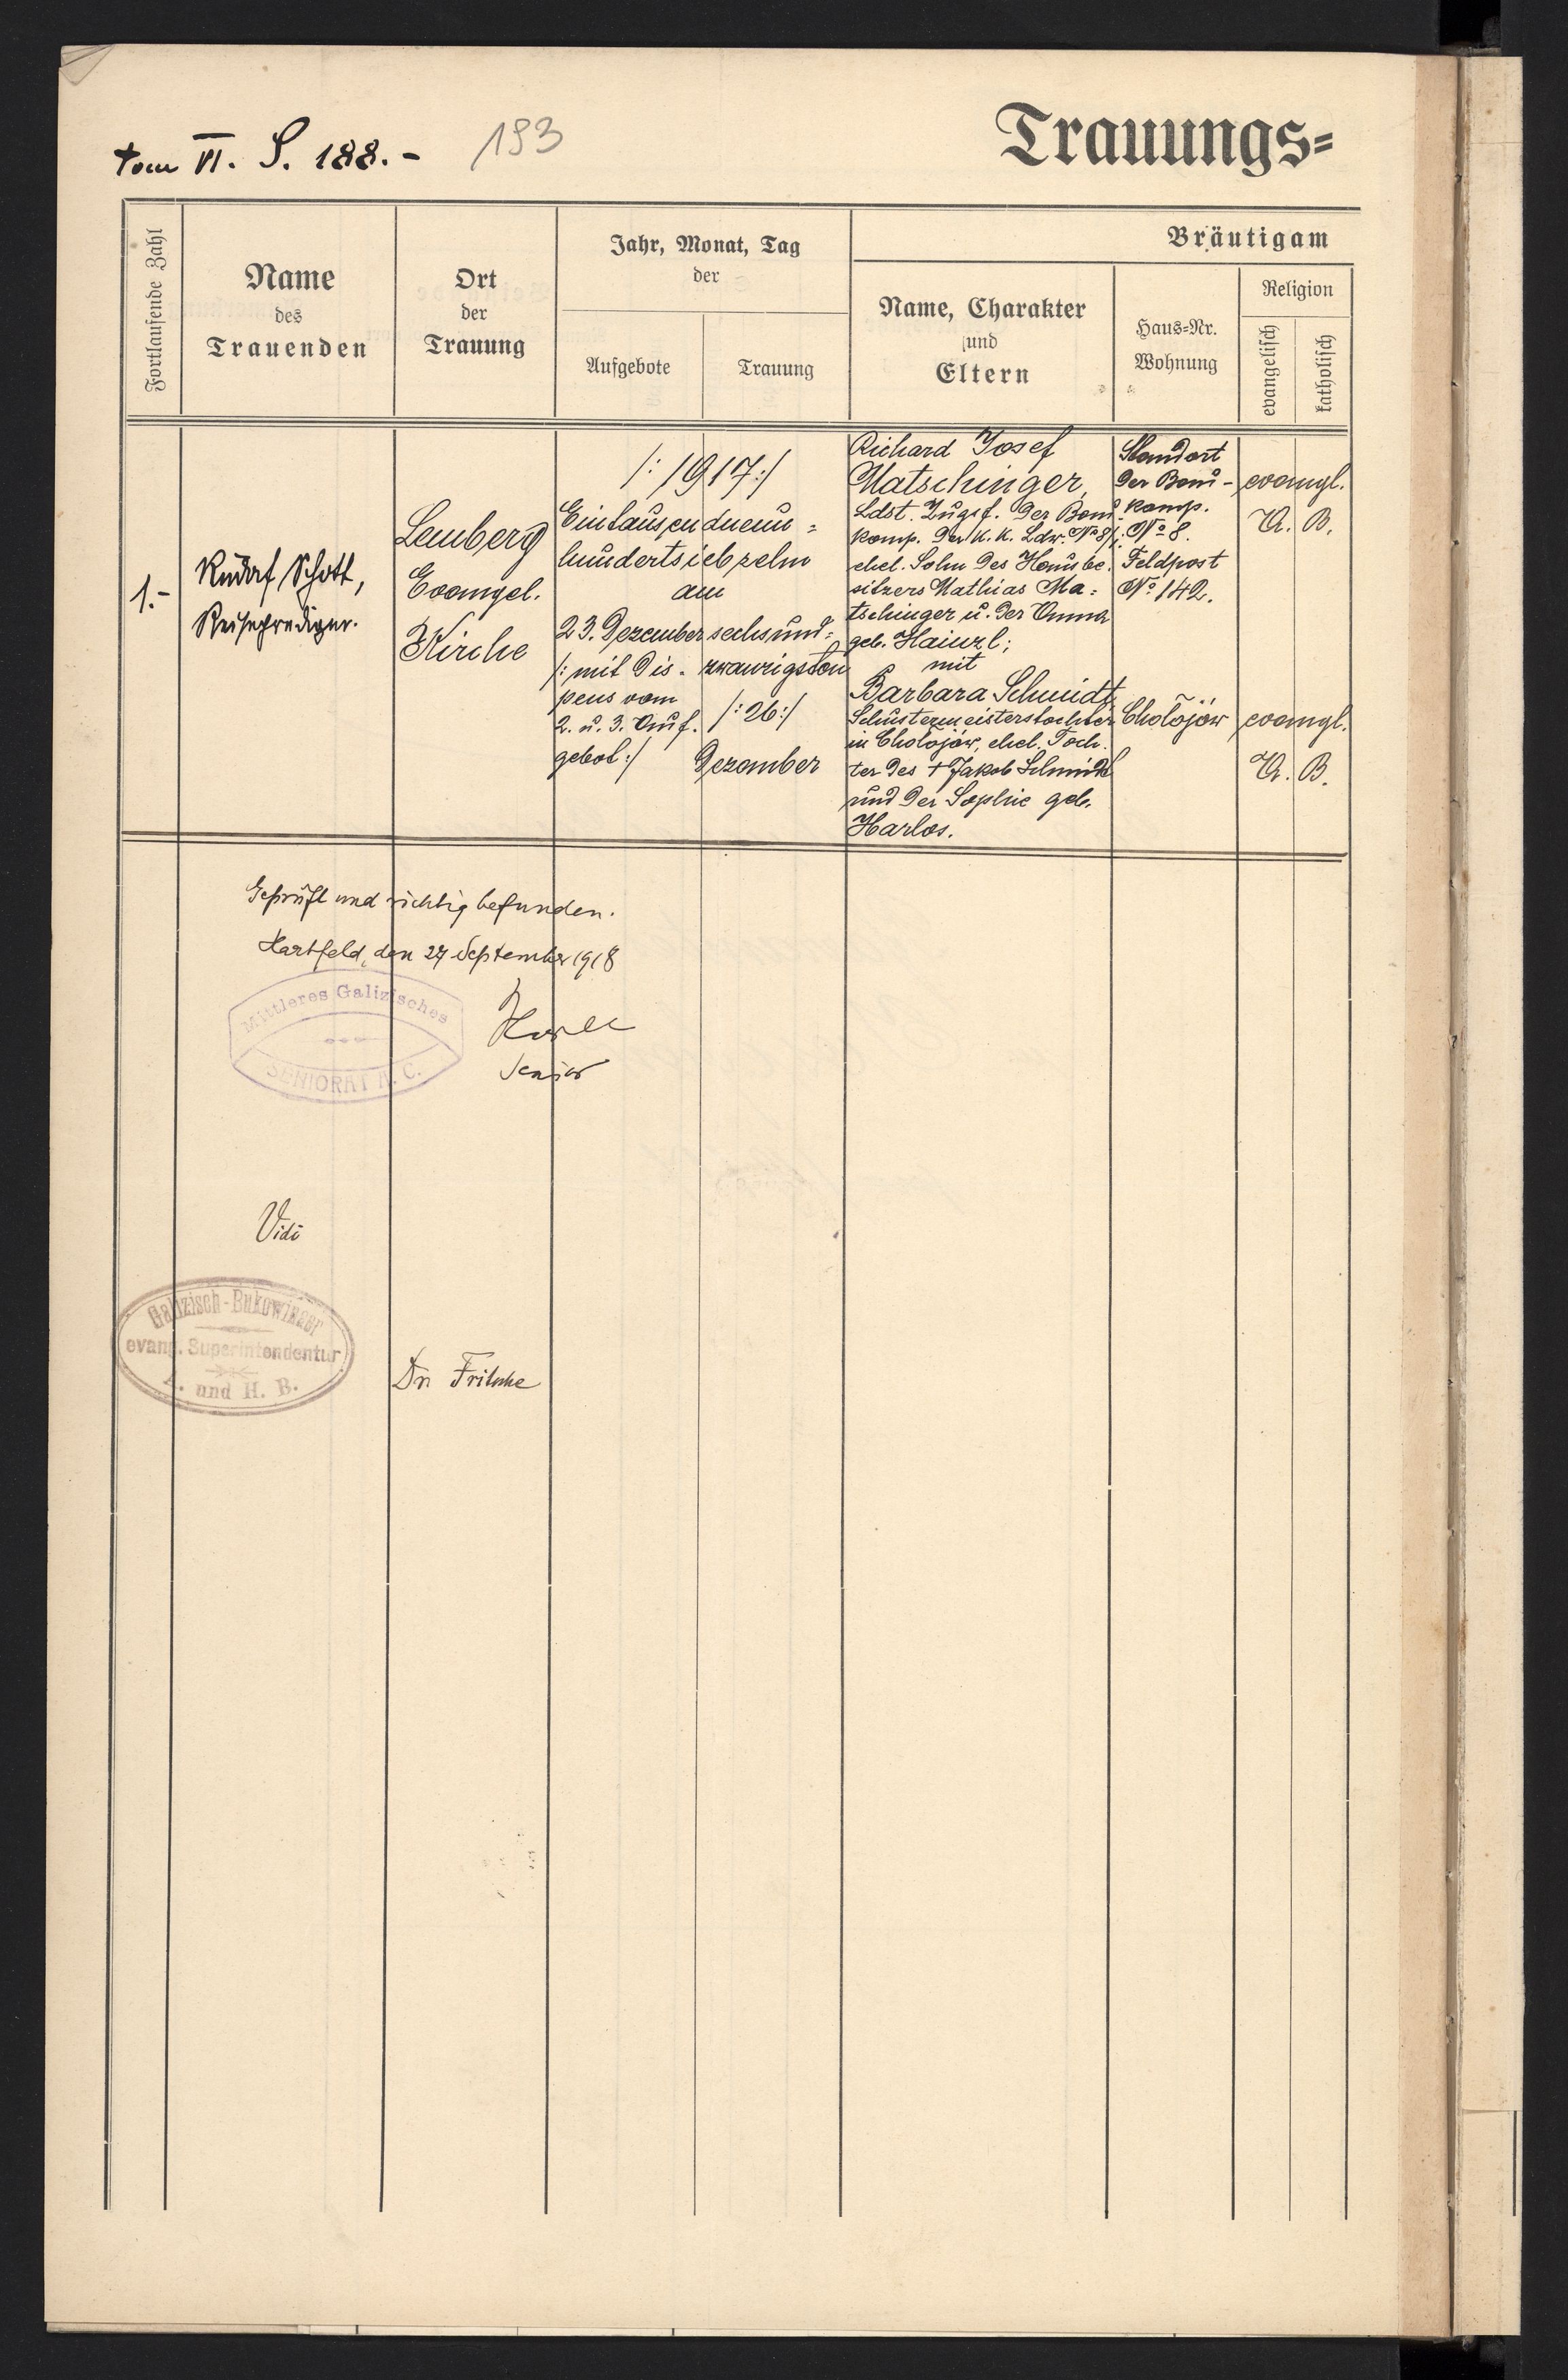 tom VI. S. 188.- 193
Trauungs=
Fortlaufende Zahl
Name
des
Trauenden
Ort
der
Trauung
Jahr, Monat, Tag
der
Aufgebote
Trauung
Bräutigam
Name, Charakter
und
Eltern
Haus=Nr.
Wohnung
Religion
evangelisch
katholisch
1.-
Rudolf Schott,
Reiseprediger.
Lemberg
Evangel.
Kirche
/: 1917 :/
Eintausendneun=
hundertsiebzehn
am
23. Dezember
/: mit Dis-
pens vom
2. u. 3. Auf.
gebot :/
sechsund=
zwanzigsten
/: 26 :/
Dezember
Richard Josef
Matschinger,
Ldst. Zugsf. der Bau
komp. der K. K. Ldw. No 8/
ehel. Sohn des Hausbe.
sitzers Mathias Ma=
tschinger u. der Anna
geb. Hainzl;
mit
Barbara Schmidt,
Schustermeisterstochter
in Cholojów, ehel. Toch.
ter des + Jakob Schmidt
und der Sophie geb.
Harlos.
Standort
der Bau-
komp.
No 8.
Feldpost
No 142.
Cholojów
evangl.
A. B.
evangl.
A. B.
Geprüft und richtig befunden.
Hartfeld, den 27 September 1918
Mittleres Galizisches
SENIORAT A. C.
Senior
Vidi
Galizisch-Bukowinaer
evang. Superintendentur
A. und H. B.
Dr Fritsche